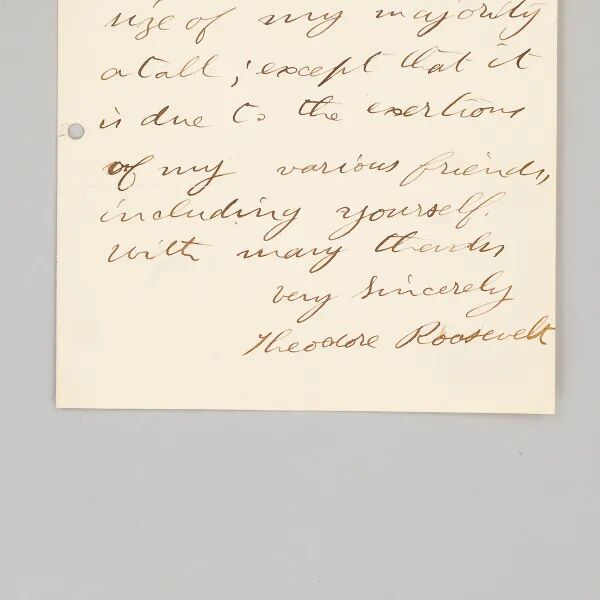 size of my majority
at all; except that it
is due to the exertions
of my various friends,
including yourself.
With many thanks
very sincerely
Theodore Roosevelt